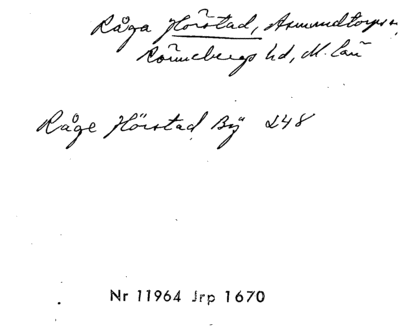 Råga Hörstad, Asmundtorps s,
Rönnebergs hd, M. län
Råge Hörstad By 248
Nr 11964 Jrp 1670